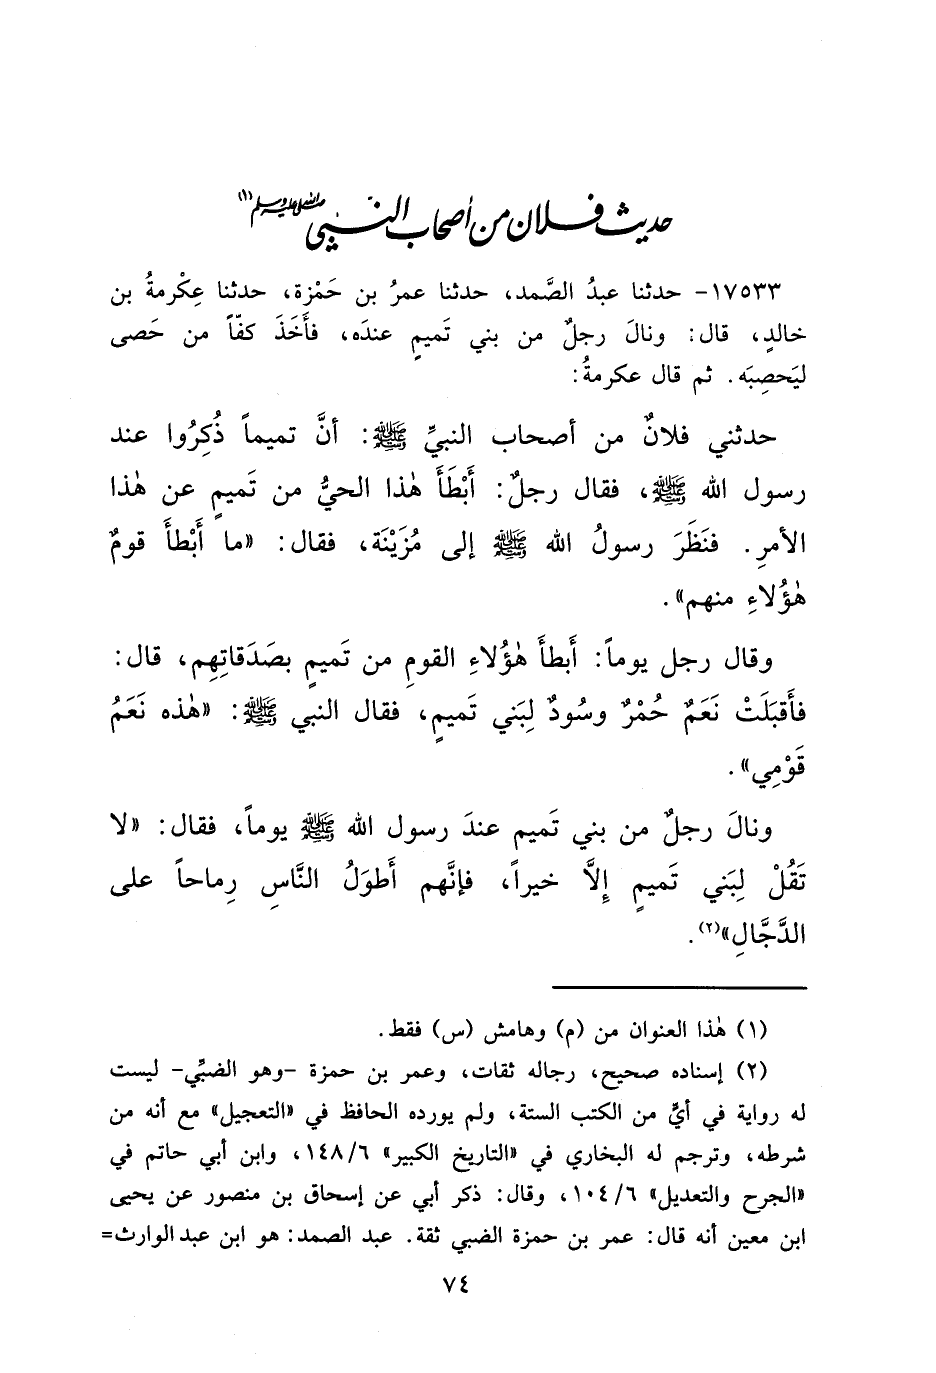 حديث فلان من أصحاب النبي صلى الله عليه وسلم (١)
١٧٥٣٣- حدثنا عبدُ الصَّمد، حدثنا عمرُ بن حَمْزة، حدثنا عِكْرمةُ بن
خالدٍ، قال: ونالَ رجلٌ من بني تَميمٍ عندَه، فأَخَذَ كفّاً من حَصى
ليَحصِبَه. ثم قال عكرمةُ:
حدثني فلانٌ من أصحاب النبيِّ ﷺ: أنَّ تميماً ذُكِرُوا عند
رسول الله ﷺ، فقال رجلٌ: أَبْطَأَ هٰذا الحيُّ من تَميمٍ عن هٰذا
الأمرِ. فنَظَرَ رسولُ الله ﷺ إلى مُزَيْنَة، فقال: «ما أَبْطأَ قومٌ
هٰؤُلاءِ منهم».
وقال رجل يوماً: أَبطأَ هٰؤُلاءِ القومِ من تَميمٍ بصَدَقاتِهِم، قال:
فأَقبَلَتْ نَعَمٌ حُمْرٌ وسُودٌ لبَني تَميمٍ، فقال النبي ﷺ: «هٰذه نَعَمُ
قَوْمِي».
ونالَ رجلٌ من بني تَميم عندَ رسول الله ﷺ يوماً، فقال: «لا
تَقُلْ لِبَني تَميمٍ إلَّا خيراً، فإنَّهم أَطوَلُ النَّاسِ رِماحاً على
الدَّجَّالِ»(٢).
(١) هٰذا العنوان من (م) وهامش (س) فقط.
(٢) إسناده صحيح، رجاله ثقات، وعمر بن حمزة -وهو الضبِّي- ليست
له رواية في أيٍّ من الكتب الستة، ولم يورده الحافظ في «التعجيل» مع أنه من
شرطه، وترجم له البخاري في «التاريخ الكبير» ١٤٨/٦، وابن أبي حاتم في
«الجرح والتعديل» ١٠٤/٦، وقال: ذكر أبي عن إسحاق بن منصور عن يحيى
ابن معين أنه قال: عمر بن حمزة الضبي ثقة. عبد الصمد: هو ابن عبد الوارث=
٧٤